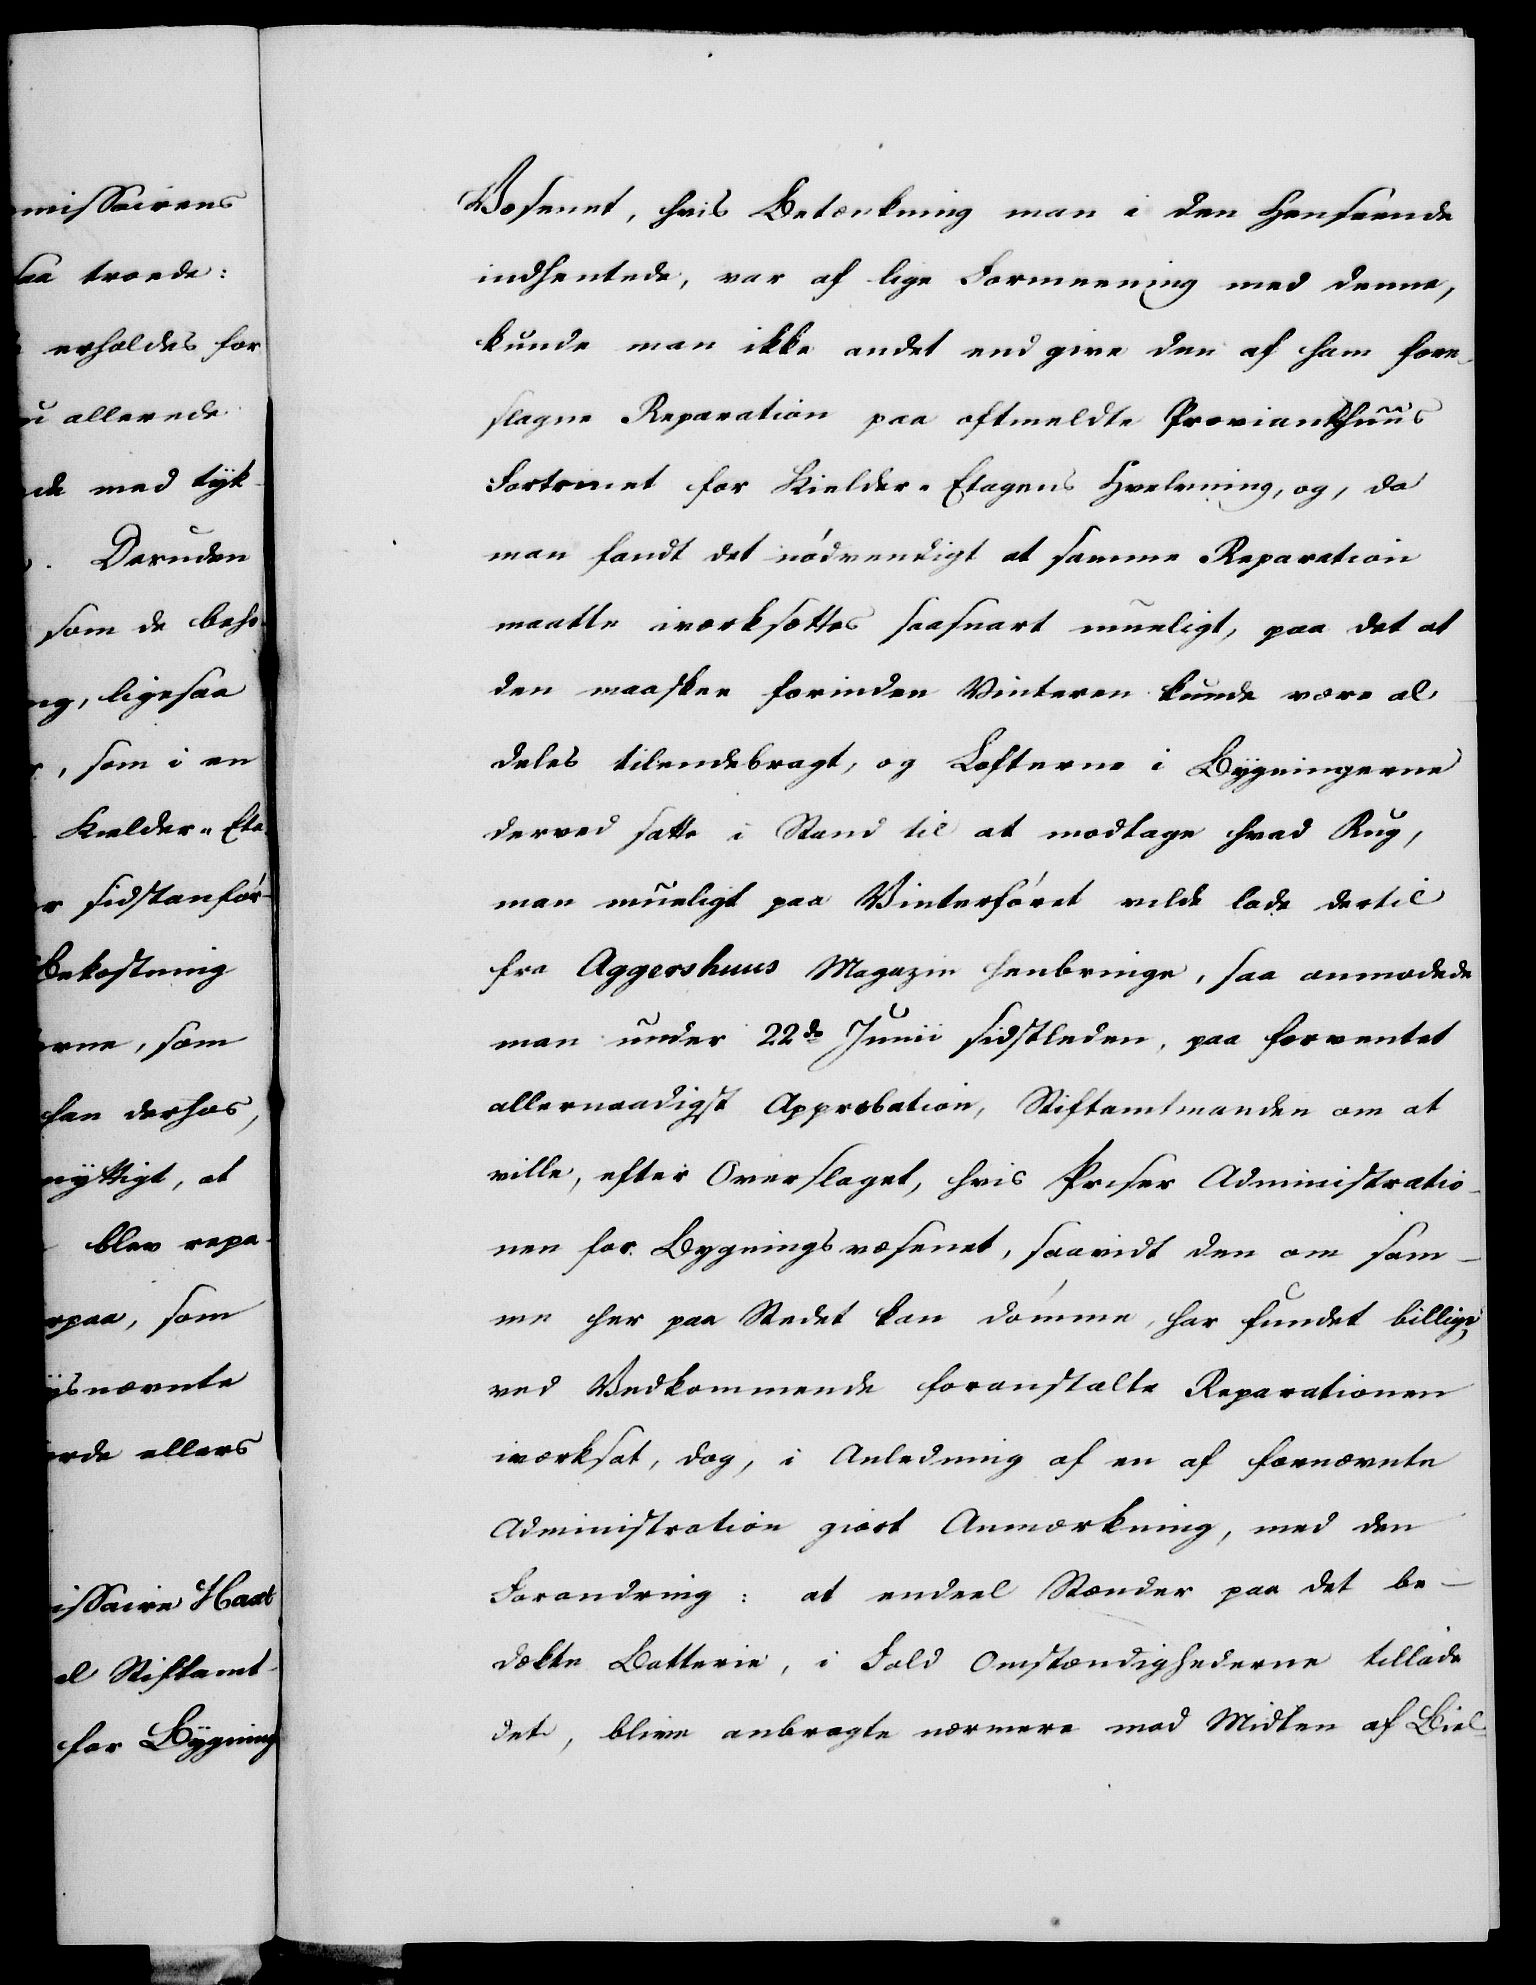 missairens
saa troede:
erholdes for
allerede
de med tyk
Desuden
som de beho-
ng, ligesaa
, som i en
Kielder-Eta-
r sidstanför-
Bekostning
erne, som
han derhos,
nyttigt, at
blev repa-
rpaa, som
ysnævnte
erde ellers
issaire Haar
al Stiftamt-
for Bygning
Væsenet, hvis Betænkning man i den Henseende
indhentede, var af lige Formeening med denne,
kunde man ikke andet end give den af ham fore-
slagne Reparation paa oftmeldte Provianthuus
Fortrinet for Kielder-Etagens Hvelvning, og, da
man fandt det nödvendigt at samme Reparation
maatte iværksættes saasnart mueligt, paa det at
den maaskee forinden Vinteren kunde være al-
deles tilendebragt, og Lofterne i Bygningerne
derved satte i Stand til at modtage hvad Rug,
man mueligt paa Vinterföret vilde lade dertil
fra Aggershuus Magazin henbringe, saa anmodede
man under 22de Junii sidstleden, paa forventet
allernaadigst Approbation, Stiftamtmanden om at
ville, efter Overslaget, hvis Priser Administratio-
nen for Bygningsvæsenet, saavidt den om sam-
me her paa Stedet kan dömme, har fundet billige,
ved Vedkommende foranstalte Reparationen
iværksat, dog, i Anledning af en af fornævnte
Administration giort Anmærkning, med den
Forandring: at endeel Stænder paa det be-
dækte Batterie, i Fald Omstændighederne tillade
det, blive anbragte nærmere mod Midten af Biel-